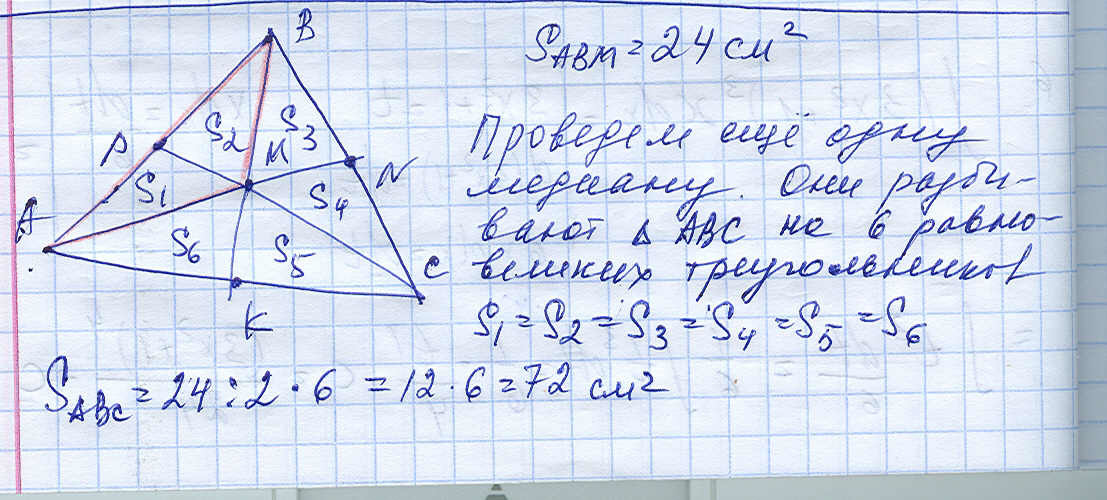 B
S_ABM = 24 см²
P
S2
S3
M
N
S1
S4
A
S6
S5
C
K
Проведем ещё одну
медиану. Они разби-
вают △ ABC на 6 равно-
великих треугольников
S1 = S2 = S3 = S4 = S5 = S6
S_ABC = 24 : 2 · 6 = 12 · 6 = 72 см²